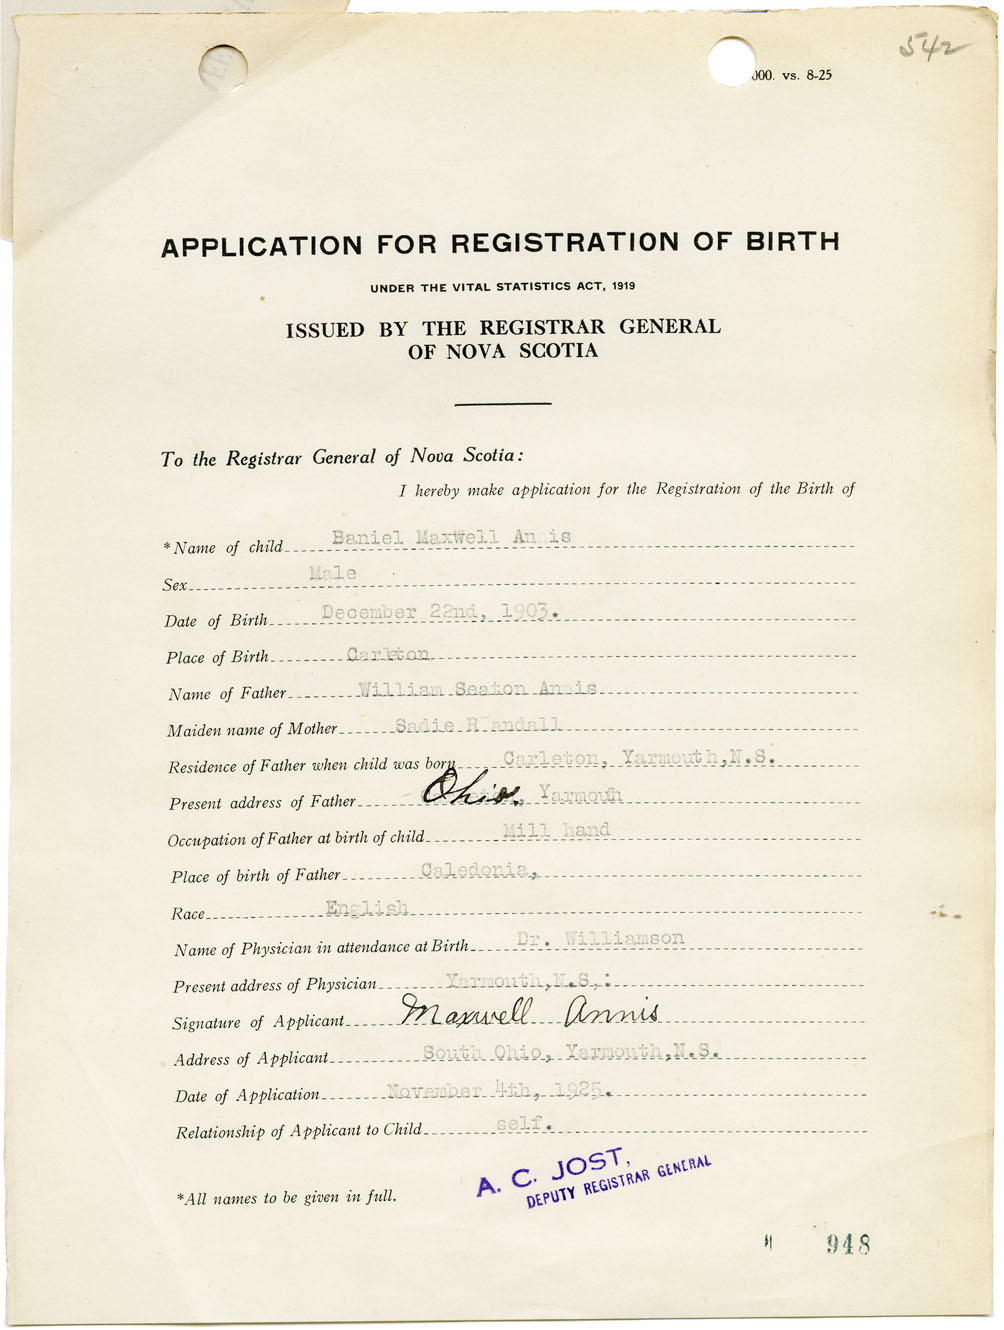 542
000. vs. 8-25
APPLICATION FOR REGISTRATION OF BIRTH
UNDER THE VITAL STATISTICS ACT, 1919
ISSUED BY THE REGISTRAR GENERAL
OF NOVA SCOTIA
To the Registrar General of Nova Scotia:
I hereby make application for the Registration of the Birth of
*Name of child Baniel Maxwell Annis
Sex Male
Date of Birth December 22nd, 1903.
Place of Birth Carleton
Name of Father William Seaton Annis
Maiden name of Mother Sadie Randall
Residence of Father when child was born Carleton, Yarmouth,N.S.
Present address of Father Ohio, Yarmouth
Occupation of Father at birth of child Mill hand
Place of birth of Father Caledonia,
Race English
Name of Physician in attendance at Birth Dr. Williamson
Present address of Physician Yarmouth,N.S,:
Signature of Applicant Maxwell Annis
Address of Applicant South Ohio, Yarmouth,N.S.
Date of Application November 4th, 1925.
Relationship of Applicant to Child self.
A. C. JOST,
DEPUTY REGISTRAR GENERAL
*All names to be given in full.
948